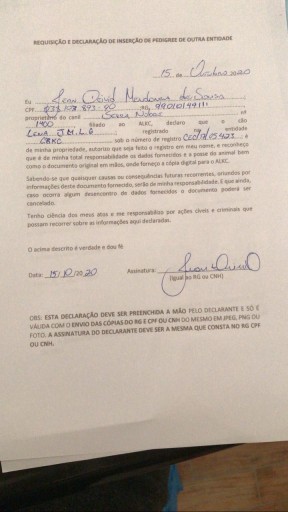 REQUISIÇÃO E DECLARAÇÃO DE INSERÇÃO DE PEDIGREE DE OUTRA ENTIDADE
15 de Outubro 2020
Eu Jean David Mendonça de Souza
CPF 90 RG
proprietário do canil Serra Nobre nº
1900 filiado ao ALKC, declaro que o cão
Luna J.M.L.G registrado na entidade
CBKC sob o número de registro é
de minha propriedade, autorizo que seja feito o registro em meu nome, e reconheço
que é de minha total responsabilidade os dados fornecidos e a posse do animal bem
como o documento original em mãos, onde forneço a cópia digital para o ALKC.
Sabendo-se que quaisquer causas ou consequências futuras recorrentes, oriundos por
informações deste documento fornecido, serão de minha responsabilidade. E que ainda,
caso ocorra algum desencontro de dados fornecidos o documento poderá ser
cancelado.
Tenho ciência dos meus atos e me responsabilizo por ações civis e criminais que
possam recorrer sobre as informações aqui declaradas.
O acima descrito é verdade e dou fé.
Data: 15/10/2020 Assinatura: Jean David
(igual ao RG ou CNH)
OBS: ESTA DECLARAÇÃO DEVE SER PREENCHIDA A MÃO PELO DECLARANTE E SÓ É
VÁLIDA COM O ENVIO DAS CÓPIAS DO RG E CPF OU CNH DO MESMO EM JPEG, PNG OU
FOTO. A ASSINATURA DO DECLARANTE DEVE SER A MESMA QUE CONSTA NO RG CPF
OU CNH.